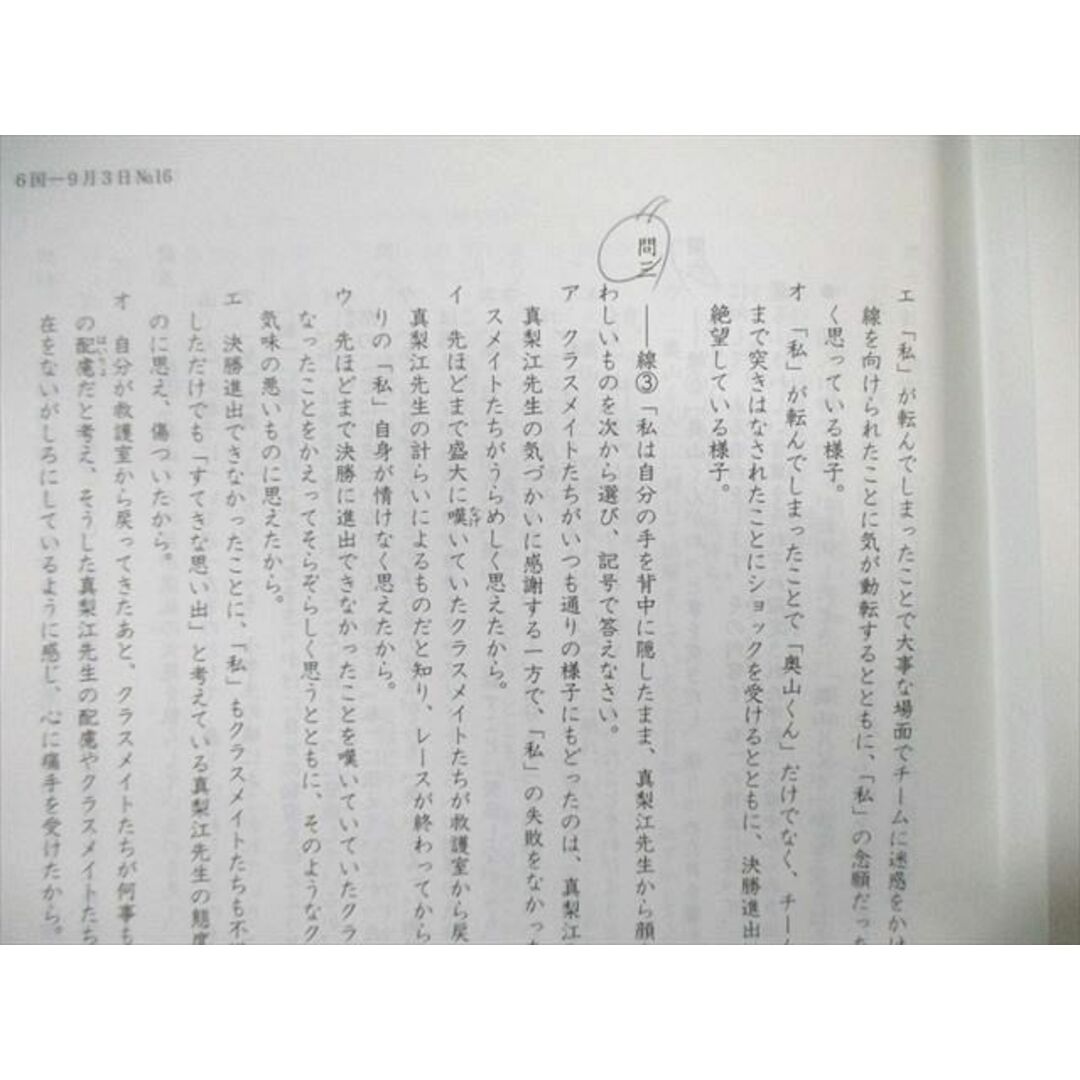 6国ー9月3日№16
エ 「私」が転んでしまったことで大事な場面でチームに迷惑をかけ
線を向けられたことに気が動転するとともに、「私」の念願だった
く思っている様子。
オ 「私」が転んでしまったことで「奥山くん」だけでなく、チー
まで突きはなされたことにショックを受けるとともに、決勝進出
絶望している様子。
問三 ――線③「私は自分の手を背中に隠したまま、真梨江先生から顔
わしいものを次から選び、記号で答えなさい。
ア クラスメイトたちがいつも通りの様子にもどったのは、真梨江
真梨江先生の気づかいに感謝する一方で、「私」の失敗をなかっ
スメイトたちがうらめしく思えたから。
イ 先ほどまで盛大に嘆いていたクラスメイトたちが救護室から戻
真梨江先生の計らいによるものだと知り、レースが終わってから
りの「私」自身が情けなく思えたから。
ウ 先ほどまで決勝に進出できなかったことを嘆いていていたクラ
なったことをかえってそらぞらしく思うとともに、そのようなク
気味の悪いものに思えたから。
エ 決勝進出できなかったことに、「私」もクラスメイトたちも不
しただけでも「すてきな思い出」と考えている真梨江先生の態度
のに思え、傷ついたから。
オ 自分が救護室から戻ってきたあと、クラスメイトたちが何事も
の配慮だと考え、そうした真梨江先生の配慮やクラスメイトたち
在をないがしろにしているように感じ、心に痛手を受けたから。